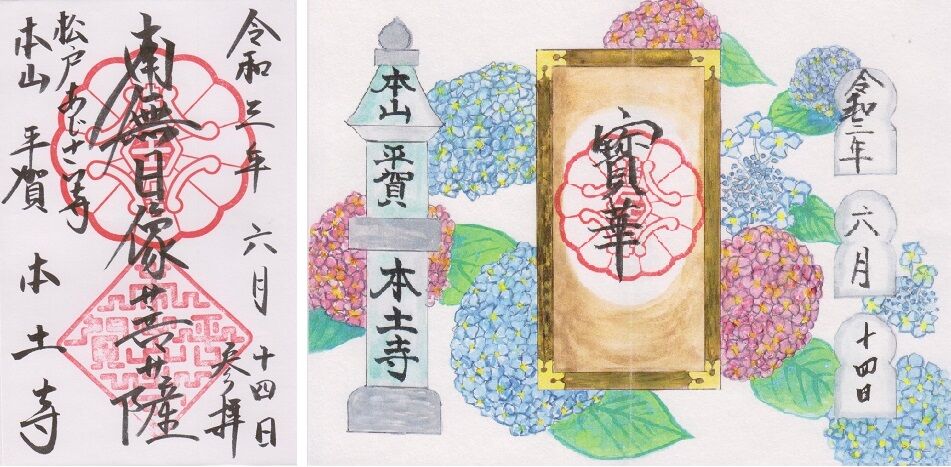 令和三年 六月 十四日
参拝
南無日像菩薩
松戸あじさい寺
本山 平賀 本土寺
令和三年
六月
十四日
寶華
本山 平賀 本土寺